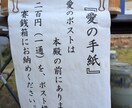 『愛の手紙』
愛のポストは
本殿の前にありま
二百円(一通)を、ポスト
賽銭箱にお納め
ださい。